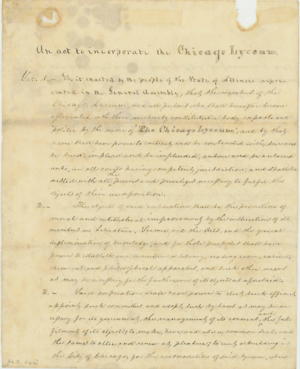 An act to incorporate the Chicago Lyceum
Be it enacted by the people of the State of Illinois repre-
sented in the General Assembly, that the
Chicago Lyceum, and all persons who shall hereafter become
associated with them are hereby constituted a body corporate and
politic by the name of "The Chicago Lyceum", and by that
name shall have power to contract and be contracted with, sue and
be sued, implead and be impleaded, answer and be answered
unto, in all courts having competent jurisdiction, and shall be
the powers and privileges necessary to fulfil the
objects of their incorporation.
The objects of said corporation shall be the promotion of
moral and intellectual improvement by the cultivation of its
members in Literature, Science and the Arts, and the general
of knowledge, and for these purposes shall have
power to establish and maintain a library, reading room, cabinets,
chemical and philosophical apparatus, and such other means
as may be necessary for the furtherance of its objects aforesaid.
Said corporation shall have power to elect such officers,
appoint such committees and adopt such by-laws as may be ne-
cessary for its government, the management of its concerns, and the ful-
filment of all its objects, to make, have and use a common seal, and
the same to alter and renew at pleasure, to erect a building in
the City of Chicago for the of said Lyceum,